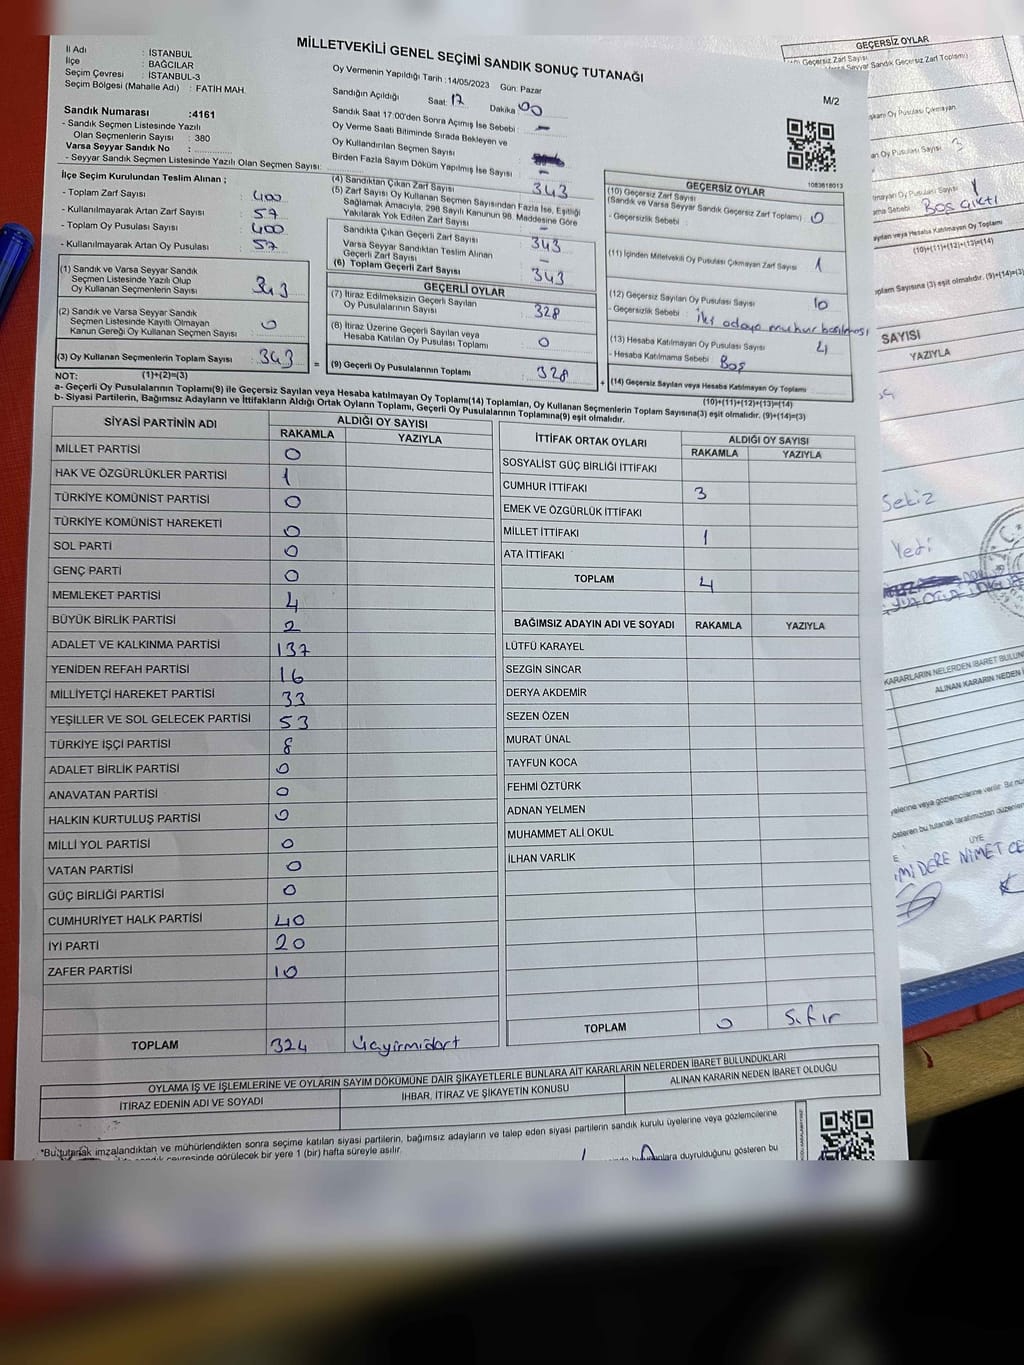 MİLLETVEKİLİ GENEL SEÇİMİ SANDIK SONUÇ TUTANAĞI
M/2
İl Adı : İSTANBUL
İlçe : BAĞCILAR
Seçim Çevresi : İSTANBUL-3
Seçim Bölgesi (Mahalle Adı) : FATİH MAH.
Oy Vermenin Yapıldığı Tarih : 14/05/2023 Gün: Pazar
Sandığın Açıldığı Saat: 17 Dakika 00
Sandık Saat 17:00'den Sonra Açımış İse Sebebi : —
Oy Verme Saati Bitiminde Sırada Bekleyen ve
Oy Kullandırılan Seçmen Sayısı
Birden Fazla Sayım Döküm Yapılmış İse Sayısı : —
Sandık Numarası :4161
- Sandık Seçmen Listesinde Yazılı
Olan Seçmenlerin Sayısı : 380
Varsa Seyyar Sandık No :
- Seyyar Sandık Seçmen Listesinde Yazılı Olan Seçmen Sayısı:
İlçe Seçim Kurulundan Teslim Alınan ;
- Toplam Zarf Sayısı : 400
- Kullanılmayarak Artan Zarf Sayısı : 57
- Toplam Oy Pusulası Sayısı : 400
- Kullanılmayarak Artan Oy Pusulası : 57
(1) Sandık ve Varsa Seyyar Sandık
Seçmen Listesinde Yazılı Olup
Oy Kullanan Seçmenlerin Sayısı : 343
(2) Sandık ve Varsa Seyyar Sandık
Seçmen Listesinde Kayıtlı Olmayan
Kanun Gereği Oy Kullanan Seçmen Sayısı : 0
(3) Oy Kullanan Seçmenlerin Toplam Sayısı : 343
(4) Sandıktan Çıkan Zarf Sayısı : 343
(5) Zarf Sayısı Oy Kullanan Seçmen Sayısından Fazla İse, Eşitliği
Sağlamak Amacıyla, 298 Sayılı Kanunun 98. Maddesine Göre
Yakılarak Yok Edilen Zarf Sayısı : —
Sandıkta Çıkan Geçerli Zarf Sayısı : 343
Varsa Seyyar Sandıktan Teslim Alınan
Geçerli Zarf Sayısı : —
(6) Toplam Geçerli Zarf Sayısı : 343
GEÇERLİ OYLAR
(7) İtiraz Edilmeksizin Geçerli Sayılan
Oy Pusulalarının Sayısı : 328
(8) İtiraz Üzerine Geçerli Sayılan veya
Hesaba Katılan Oy Pusulası Toplamı : 0
(9) Geçerli Oy Pusulalarının Toplamı : 328
GEÇERSİZ OYLAR
1083618013
(10) Geçersiz Zarf Sayısı
(Sandık ve Varsa Seyyar Sandık Geçersiz Zarf Toplamı) : 0
- Geçersizlik Sebebi :
(11) İçinden Milletvekili Oy Pusulası Çıkmayan Zarf Sayısı : 1
(12) Geçersiz Sayılan Oy Pusulası Sayısı : 10
- Geçersizlik Sebebi : İki adaya mühür basılması
(13) Hesaba Katılmayan Oy Pusulası Sayısı : 4
- Hesaba Katılmama Sebebi : Boş
(14) Geçersiz Sayılan veya Hesaba Katılmayan Oy Toplamı
(10)+(11)+(12)+(13)=(14)
NOT: (1)+(2)=(3)
a- Geçerli Oy Pusulalarının Toplamı(9) ile Geçersiz Sayılan veya Hesaba katılmayan Oy Toplamı(14) Toplamları, Oy Kullanan Seçmenlerin Toplam Sayısına(3) eşit olmalıdır. (9)+(14)=(3)
b- Siyasi Partilerin, Bağımsız Adayların ve İttifakların Aldığı Ortak Oyların Toplamı, Geçerli Oy Pusulalarının Toplamına(9) eşit olmalıdır.
SİYASİ PARTİNİN ADI ALDIĞI OY SAYISI
RAKAMLA YAZIYLA
MİLLET PARTİSİ 0
HAK VE ÖZGÜRLÜKLER PARTİSİ 1
TÜRKİYE KOMÜNİST PARTİSİ 0
TÜRKİYE KOMÜNİST HAREKETİ 0
SOL PARTİ 0
GENÇ PARTİ 0
MEMLEKET PARTİSİ 4
BÜYÜK BİRLİK PARTİSİ 2
ADALET VE KALKINMA PARTİSİ 137
YENİDEN REFAH PARTİSİ 16
MİLLİYETÇİ HAREKET PARTİSİ 33
YEŞİLLER VE SOL GELECEK PARTİSİ 53
TÜRKİYE İŞÇİ PARTİSİ 8
ADALET BİRLİK PARTİSİ 0
ANAVATAN PARTİSİ 0
HALKIN KURTULUŞ PARTİSİ 0
MİLLİ YOL PARTİSİ 0
VATAN PARTİSİ 0
GÜÇ BİRLİĞİ PARTİSİ 0
CUMHURİYET HALK PARTİSİ 40
İYİ PARTİ 20
ZAFER PARTİSİ 10
TOPLAM 324 Üçyirmidört
İTTİFAK ORTAK OYLARI ALDIĞI OY SAYISI
RAKAMLA YAZIYLA
SOSYALİST GÜÇ BİRLİĞİ İTTİFAKI
CUMHUR İTTİFAKI 3
EMEK VE ÖZGÜRLÜK İTTİFAKI
MİLLET İTTİFAKI 1
ATA İTTİFAKI
TOPLAM 4
BAĞIMSIZ ADAYIN ADI VE SOYADI RAKAMLA YAZIYLA
LÜTFÜ KARAYEL
SEZGİN SİNCAR
DERYA AKDEMİR
SEZEN ÖZEN
MURAT ÜNAL
TAYFUN KOCA
FEHMİ ÖZTÜRK
ADNAN YELMEN
MUHAMMET ALİ OKUL
İLHAN VARLIK
TOPLAM 0 Sıfır
OYLAMA İŞ VE İŞLEMLERİNE VE OYLARIN SAYIM DÖKÜMÜNE DAİR ŞİKAYETLERLE BUNLARA AİT KARARLARIN NELERDEN İBARET BULUNDUKLARI
İTİRAZ EDENİN ADI VE SOYADI
İHBAR, İTİRAZ VE ŞİKAYETİN KONUSU
ALINAN KARARIN NEDEN İBARET OLDUĞU
*Bu tutanak imzalandıktan ve mühürlendikten sonra seçime katılan siyasi partilerin, bağımsız adayların ve talep eden siyasi partilerin sandık kurulu üyelerine veya gözlemcilerine
çevresinde görülecek bir yere 1 (bir) hafta süreyle asılır.
duyrulduğunu gösteren bu
GEÇERSİZ OYLAR
Geçersiz Zarf Sayısı
Seyyar Sandık Geçersiz Zarf Toplamı)
Oy Pusulası Çıkmayan
Oy Pusulası Sayısı 3
Oy Pusulası Sayısı 1
Sebebi : Boş çıktı
veya Hesaba Katılmayan Oy Toplamı
(10)+(11)+(12)+(13)=(14)
Toplam Sayısına (3) eşit olmalıdır. (9)+(14)=(3)
SAYISI
YAZIYLA
Sekiz
Yedi
KARARLARIN NELERDEN İBARET
ALINAN KARARIN NEDEN
veya gözlemcilerine verilir.
gösteren bu tutanak tarafımızdan
ÜYE
NİMET